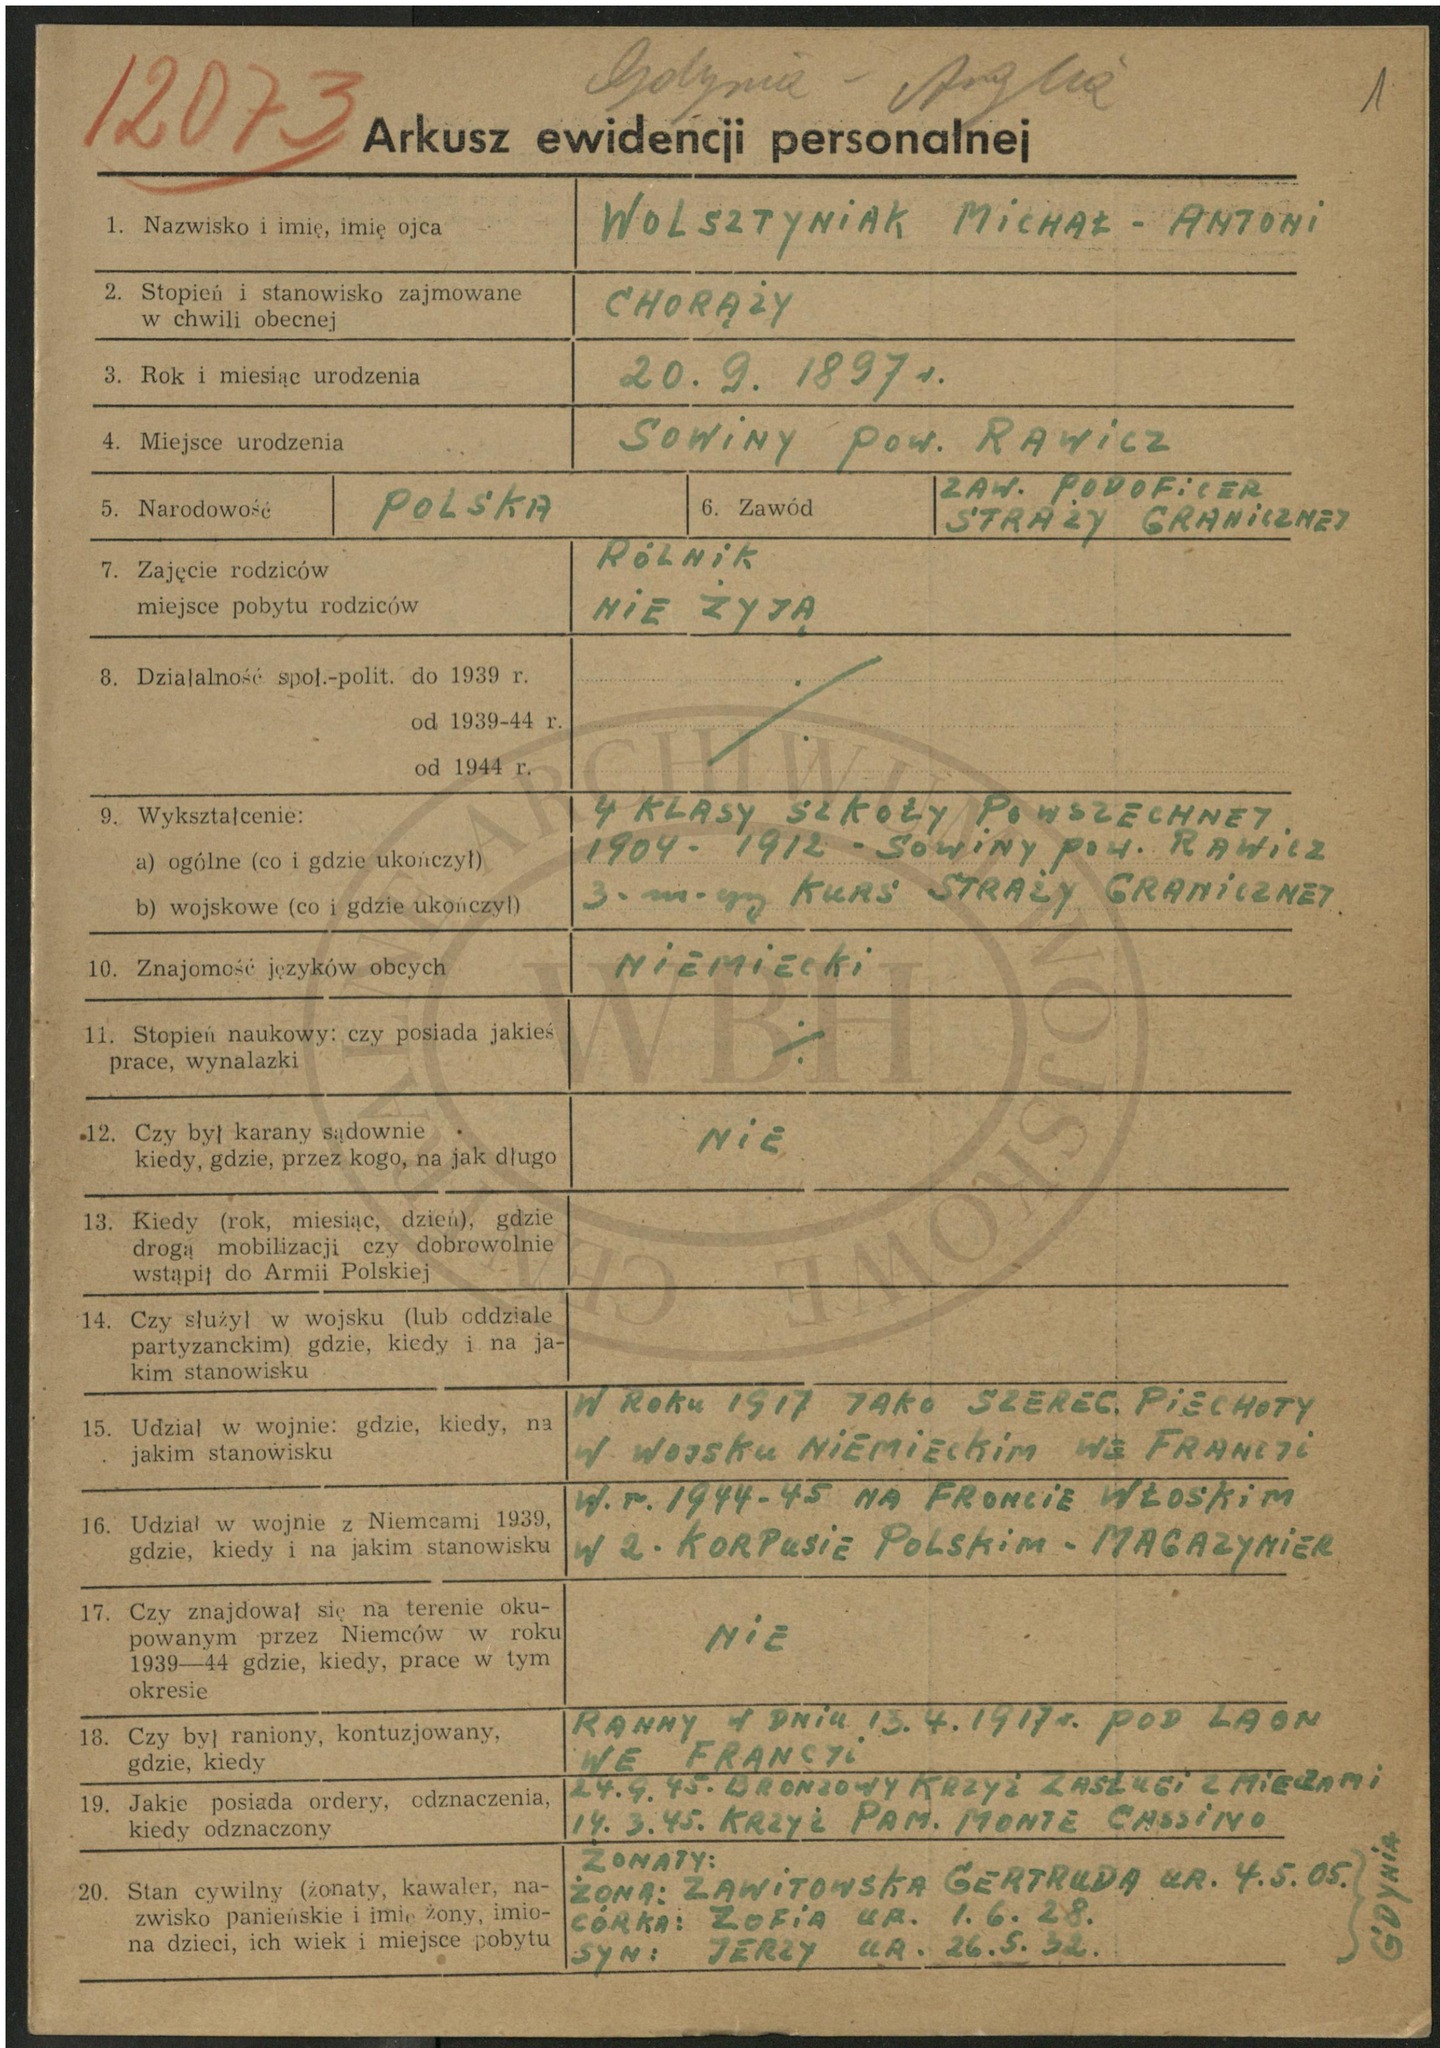 12073
Gdynia - Anglia
1
Arkusz ewidencji personalnej
1. Nazwisko i imię, imię ojca
WOLSZTYNIAK MICHAŁ - ANTONI
2. Stopień i stanowisko zajmowane
w chwili obecnej
CHORĄŻY
3. Rok i miesiąc urodzenia
20. 9. 1897 r.
4. Miejsce urodzenia
SOWINY pow. RAWICZ
5. Narodowość
POLSKA
6. Zawód
ZAW. PODOFICER
STRAŻY GRANICZNEJ
7. Zajęcie rodziców
RÓLNIK
miejsce pobytu rodziców
NIE ŻYJĄ
8. Działalność społ.-polit. do 1939 r.
od 1939-44 r.
od 1944 r.
9. Wykształcenie:
4 KLASY SZKOŁY POWSZECHNEJ
a) ogólne (co i gdzie ukończył)
1904 - 1912 - SOWINY pow. RAWICZ
b) wojskowe (co i gdzie ukończył)
3-m-cy KURS STRAŻY GRANICZNEJ
10. Znajomość języków obcych
NIEMIECKI
11. Stopień naukowy: czy posiada jakieś
prace, wynalazki
12. Czy był karany sądownie
kiedy, gdzie, przez kogo, na jak długo
NIE
13. Kiedy (rok, miesiąc, dzień), gdzie
drogą mobilizacji czy dobrowolnie
wstąpił do Armii Polskiej
14. Czy służył w wojsku (lub oddziale
partyzanckim) gdzie, kiedy i na ja-
kim stanowisku
15. Udział w wojnie: gdzie, kiedy, na
jakim stanowisku
W ROKU 1917 JAKO SZEREG. PIECHOTY
W WOJSKU NIEMIECKIM WE FRANCJI
16. Udział w wojnie z Niemcami 1939,
gdzie, kiedy i na jakim stanowisku
W. r. 1944-45 NA FRONCIE WŁOSKIM
W 2. KORPUSIE POLSKIM - MAGAZYNIER
17. Czy znajdował się na terenie oku-
powanym przez Niemców w roku
1939—44 gdzie, kiedy, prace w tym
okresie
NIE
18. Czy był raniony, kontuzjowany,
gdzie, kiedy
RANNY W DNIU 13.4.1917 r. POD LAON
WE FRANCJI
19. Jakie posiada ordery, odznaczenia,
kiedy odznaczony
24.9.45. BRONZOWY KRZYŻ ZASŁUGI Z MIECZAMI
14.3.45. KRZYŻ PAM. MONTE CASSINO
20. Stan cywilny (żonaty, kawaler, na-
zwisko panieńskie i imię żony, imio-
na dzieci, ich wiek i miejsce pobytu
ŻONATY:
ŻONA: ZAWITOWSKA GERTRUDA UR. 4.5.05.
CÓRKA: ZOFIA UR. 1.6.28.
SYN: JERZY UR. 26.5.32.
GDYNIA
CENTRALNE ARCHIWUM WOJSKOWE
WBH